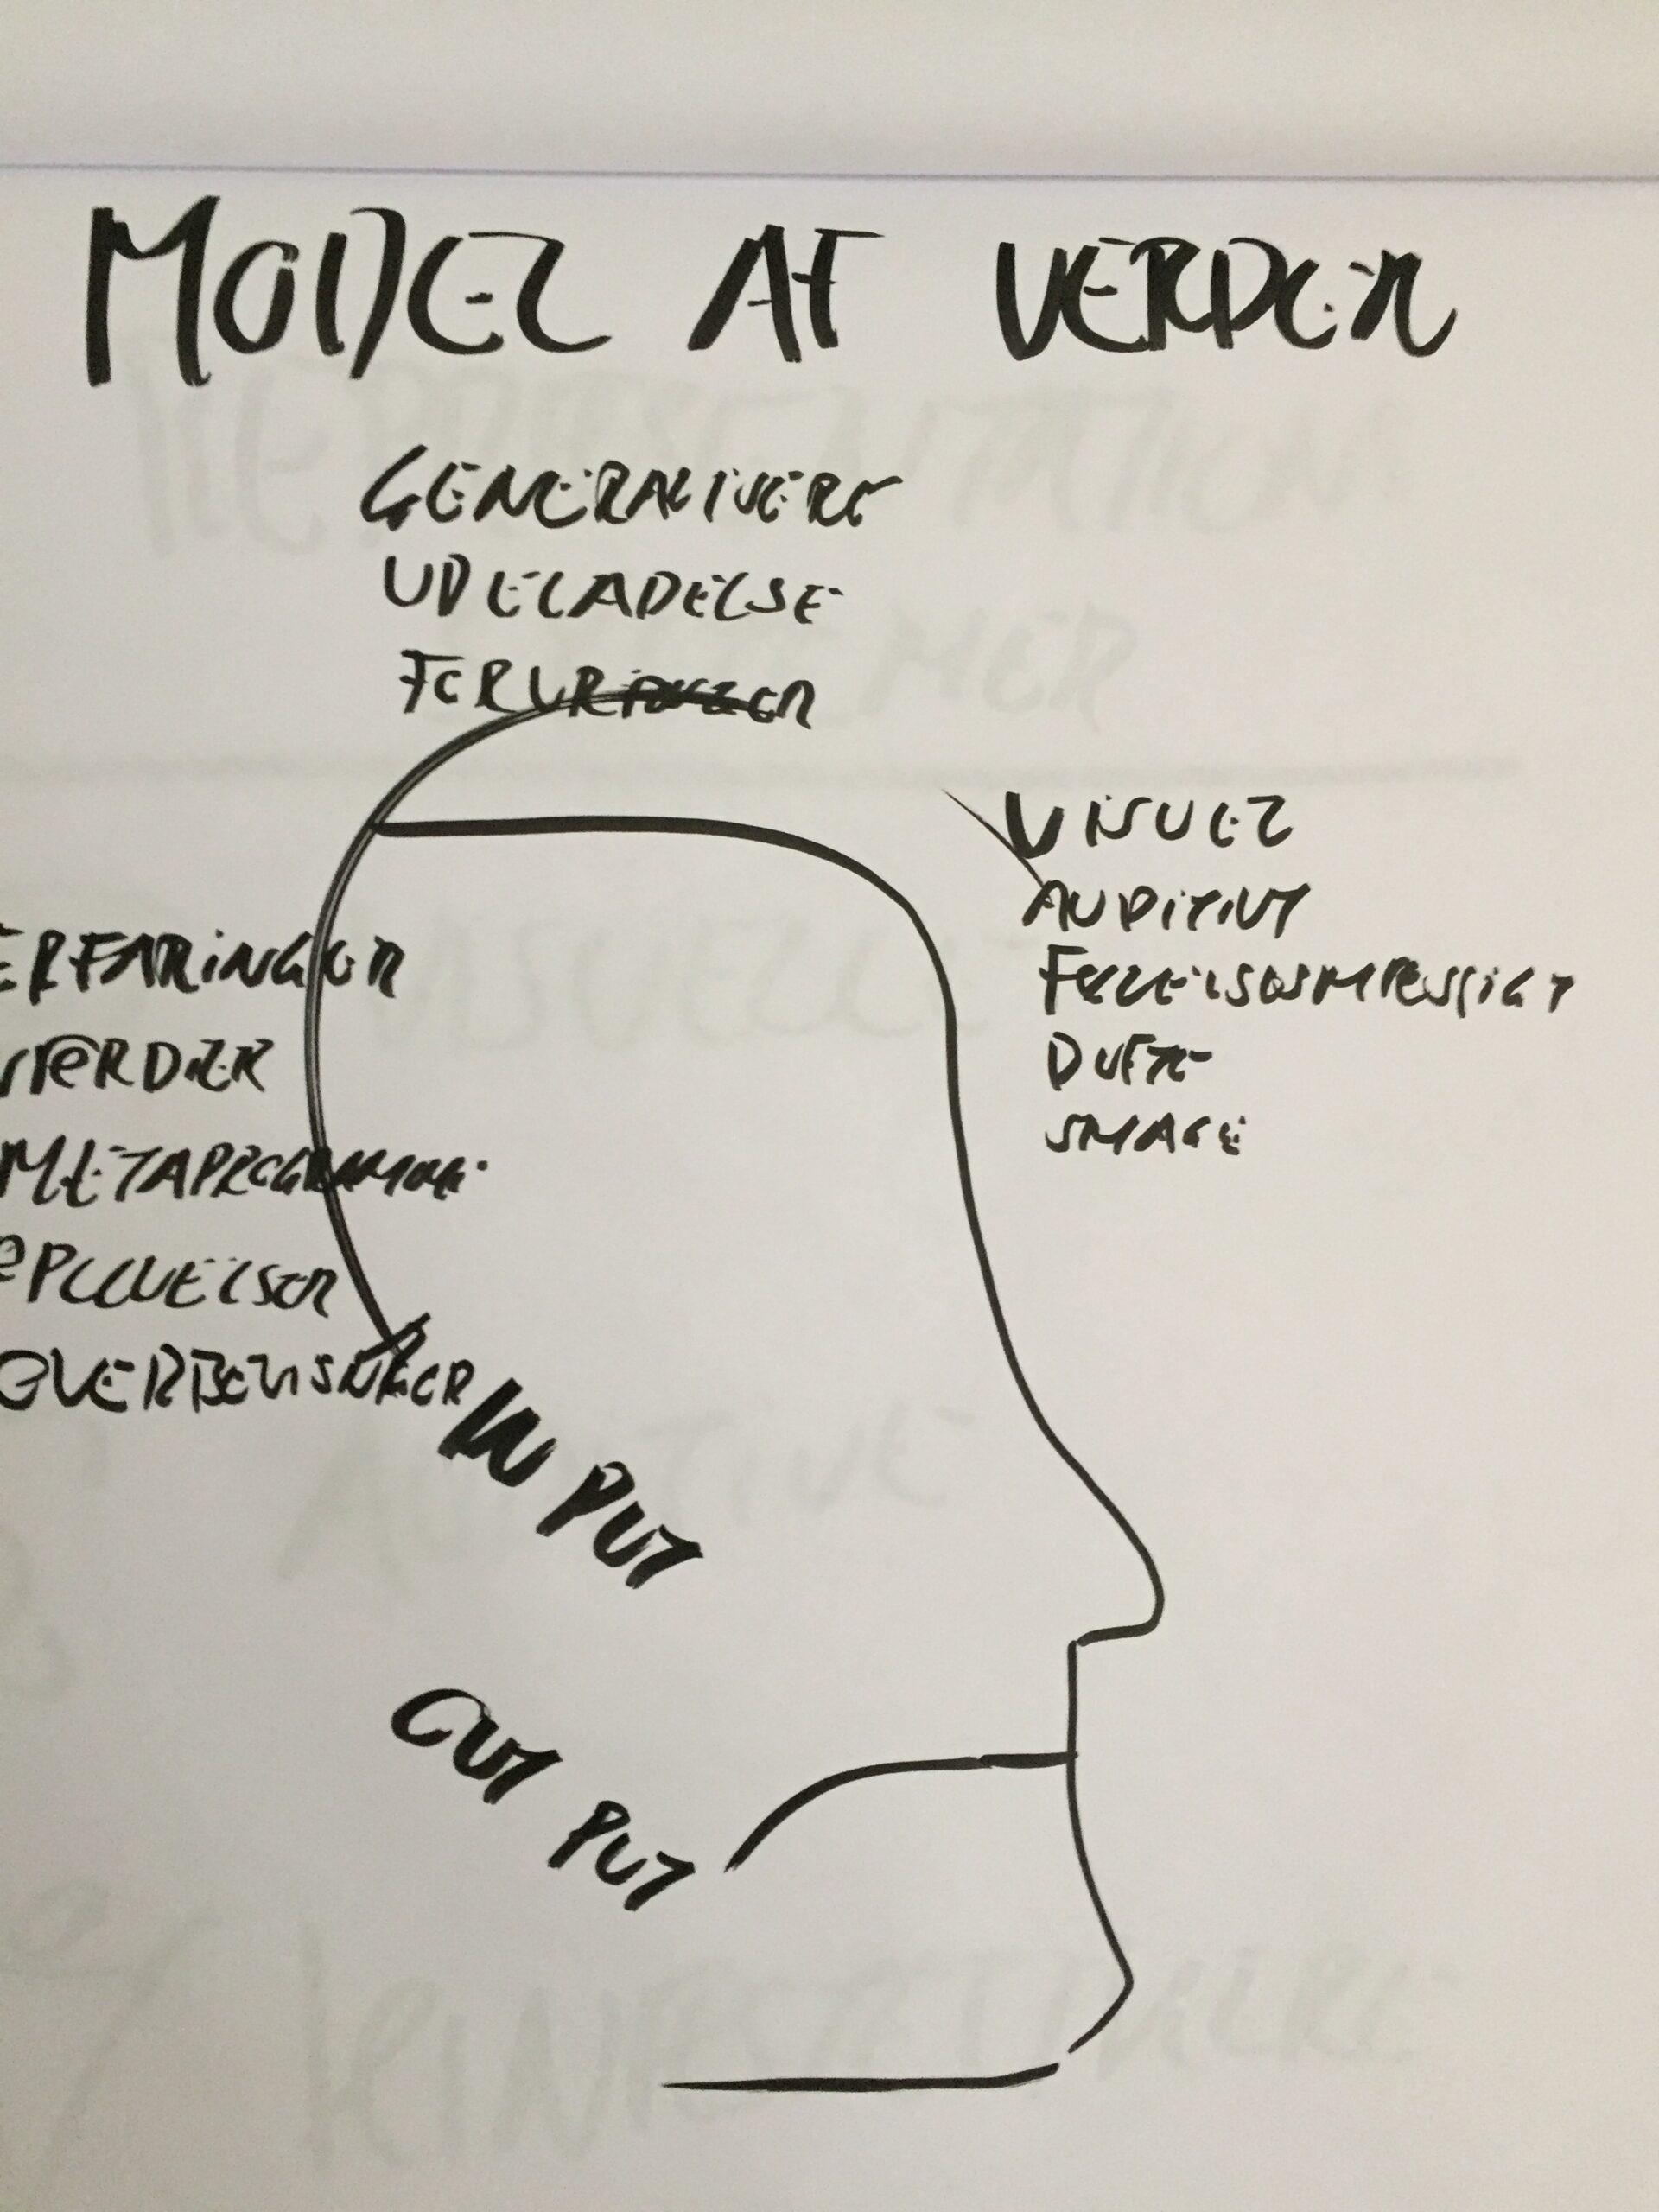 MODEL AF VERDEN
GENERALISERE
UDELADELSE
FORVRÆNGER
VISUEL
AUDITIVT
FØLELSESMÆSSIGT
DUFTE
SMAGE
ERFARINGER
VÆRDIER
METAPROGRAMMER
OPLEVELSER
OVERBEVISNINGER
IN PUT
OUT PUT